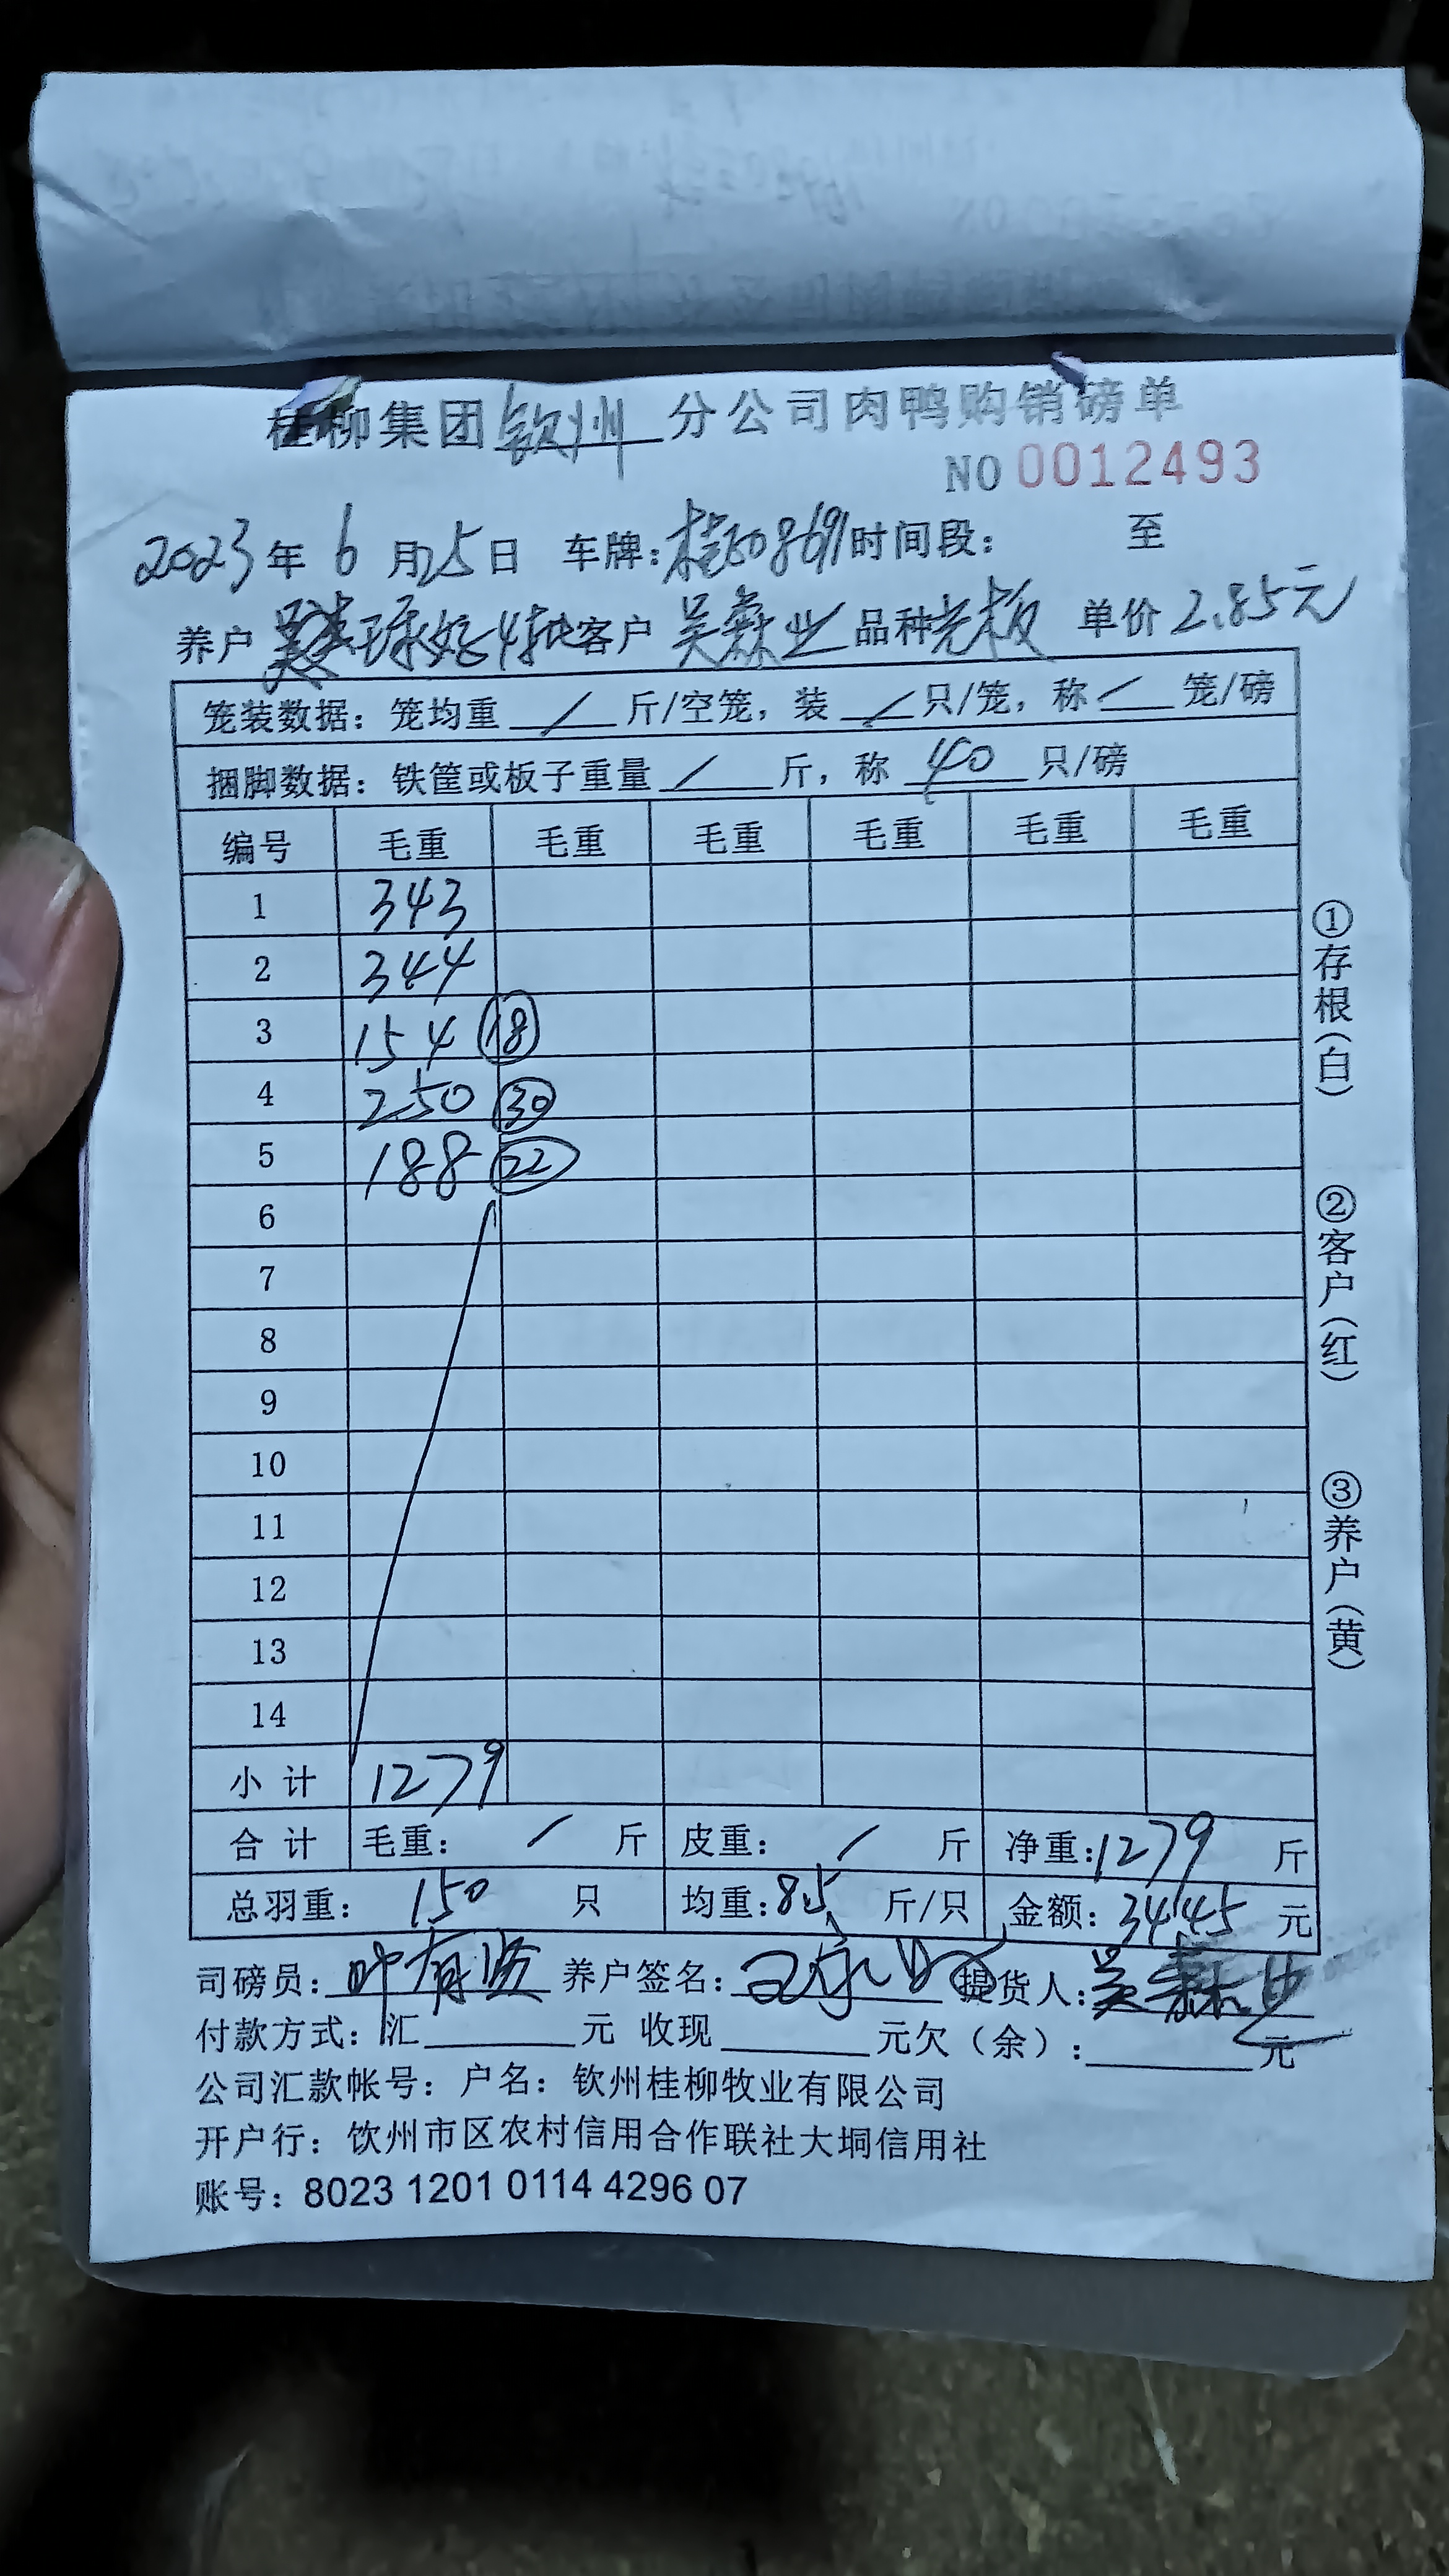 桂柳集团钦州分公司肉鸭购销磅单
NO 0012493
2023年 6 月25日 车牌:桂 时间段: 至
养户 球 4批 客户 吴森业 品种 光板 单价 2.85元
笼装数据: 笼均重 / 斤/空笼, 装 / 只/笼, 称 / 笼/磅
捆脚数据: 铁筐或板子重量 / 斤, 称 40 只/磅
编号 毛重 毛重 毛重 毛重 毛重 毛重
1 343
2 344
3 154 ⑱
4 250 ㉚
5 188 ㉒
6
7
8
9
10
11
12
13
14
小计 1279
合计 毛重: / 斤 皮重: / 斤 净重:1279 斤
总羽重: 150 只 均重:8.5 斤/只 金额: 3445 元
司磅员: 叶有 养户签名: 提货人:吴森业
付款方式: 汇 元 收现 元欠(余): 元
公司汇款帐号: 户名: 钦州桂柳牧业有限公司
开户行: 钦州市区农村信用合作联社大垌信用社
账号: 8023 1201 0114 4296 07
①存根(白)
②客户(红)
③养户(黄)